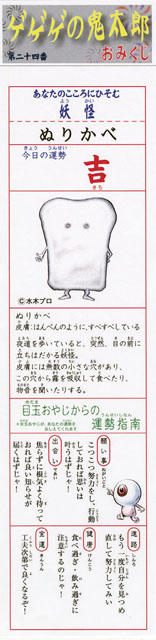 ゲゲゲの鬼太郎
おみくじ
第二十四番
あなたのこころにひそむ
よう かい
妖怪
ぬりかべ
きょう うんせい
今日の運勢
吉
きち
©水木プロ
ぬりかべ
皮膚:はんぺんのように、すべすべしている
夜道を歩いていると、突然、目の前に
立ちはだかる妖怪。
皮膚には無数の小さな穴があり、
この穴から霧を吸収して食べたり、
物音を聞いたりする。
めだま
目玉おやじからの
うんせいしなん
運勢指南
進路
しんろ
もう一度自分を見つめ
直して努力してみい
願い事
こつこつ努力をし、行動
しておれば思いは
叶うはずじゃ!
出会い
焦らずに根気よく待って
おれば良い知らせが
届くはずじゃ!
健康
けんこう
食べ過ぎ・飲み過ぎに
注意するのじゃ!
金運
きんうん
工夫次第で良くなるぞ!